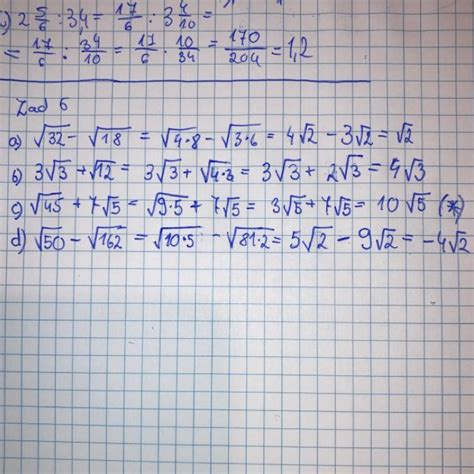 c) 2 5/6 : 3,4 = 17/6 : 3 4/10 =
= 17/6 : 34/10 = 17/6 · 10/34 = 170/204 = 1,2
Zad 6
a) √32 - √18 = √4·8 - √3·6 = 4√2 - 3√2 = √2
b) 3√3 + √12 = 3√3 + √4·3 = 3√3 + 2√3 = 5√3
c) √45 + 7√5 = √9·5 + 7√5 = 3√5 + 7√5 = 10√5 (*)
d) √50 - √162 = √10·5 - √81·2 = 5√2 - 9√2 = -4√2